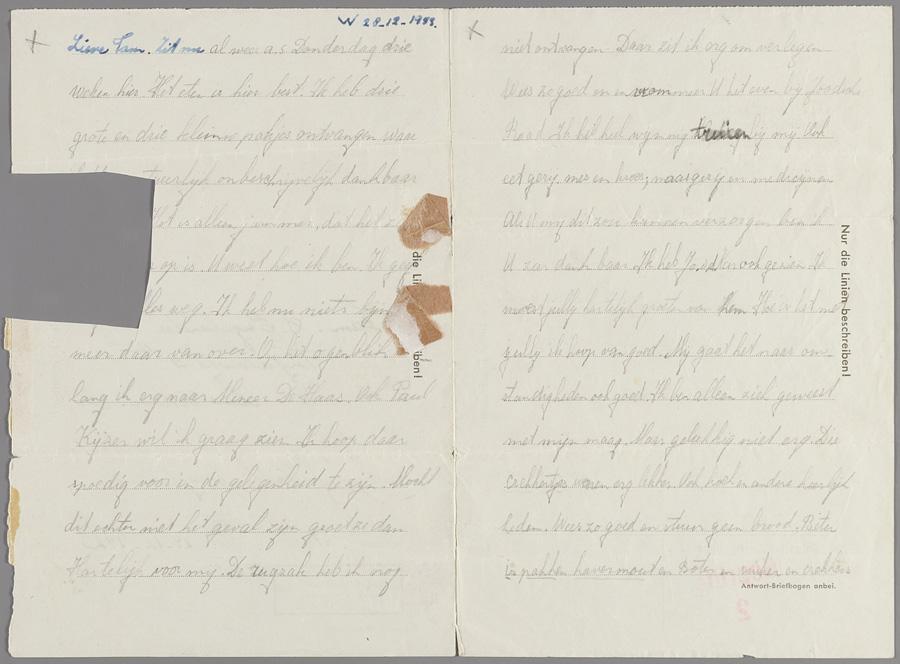 W 28-12-1943.
Lieve Fam. Zit nu al weer a.s Donderdag drie
weken hier. Het eten is hier best. Ik heb drie
grote en drie kleinne pakjes ontvangen waar
onbeschrijvelijk dankbaar
Het is alleen jammer, dat het
op is. U weet hoe ik ben. Ik
weg. Ik heb nu niets
meer daar van over. Op het ogenblik
lang ik erg naar Meneer De Haas. Ook Paul
Kijzer wil ik graag zien. Ik hoop daar
spoedig voor in de gelegenheid te zijn. Mocht
dit echter niet het geval zijn groet ze dan
Hartelijk voor mij. De rugzak heb ik nog
niet ontvangen. Daar zit ik erg om verlegen
Wees zo goed en U het even bij Joodsche
Raad. Ik heb heel wijnig bij mij. Ook
eet gerij. mes en naaigerij en medicijnen
Als U mij dit zou kunnen verzorgen ben ik
U zeer dankbaar. Ik heb ook gezien. Ik
moest jullie hartelijk groeten van hem. Hoe is het met
jullie ik hoop van goed. Mij gaat het naar om-
standigheden ook goed. Ik ben alleen ziek geweest
met mijn maag. Maar gelukkig niet erg. Die
waren erg lekker. Ook koek en andere heerlijk
heden. Wees zo goed en stuur geen brood. Beter
is pakken havermout en Boter en suiker en
Nur die Linien beschreiben!
Antwort-Briefbogen anbei.